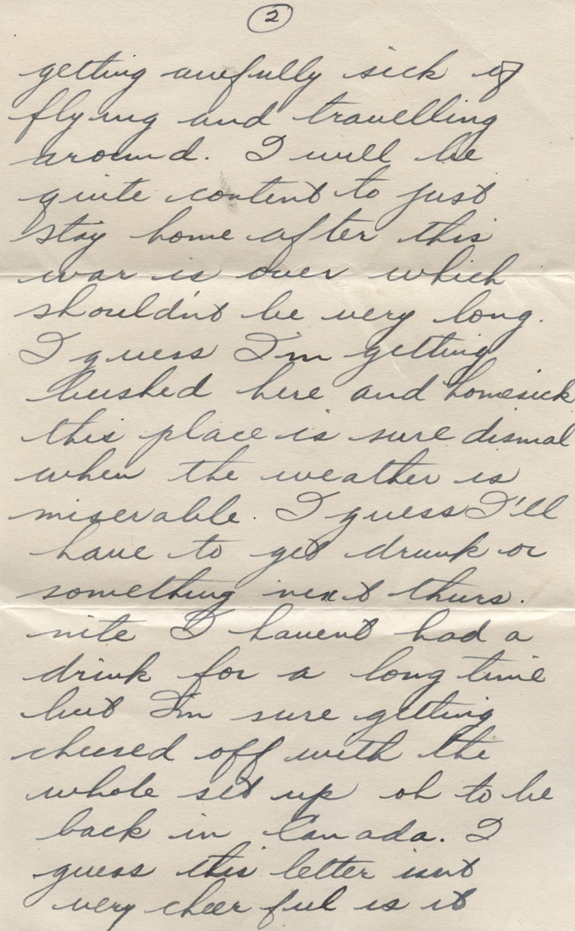 2
getting awefully sick of
flying and travelling
around. I will be
quite content to just
stay home after this
war is over which
shouldn't be very long.
I guess I'm getting
bushed here and homesick
this place is sure dismal
when the weather is
miserable. I guess I'll
have to get drunk or
something next thurs.
nite I havent had a
drink for a long time
but I'm sure getting
cheesed off with the
whole set up oh to be
back in Canada. I
guess this letter isnt
very cheerful is it